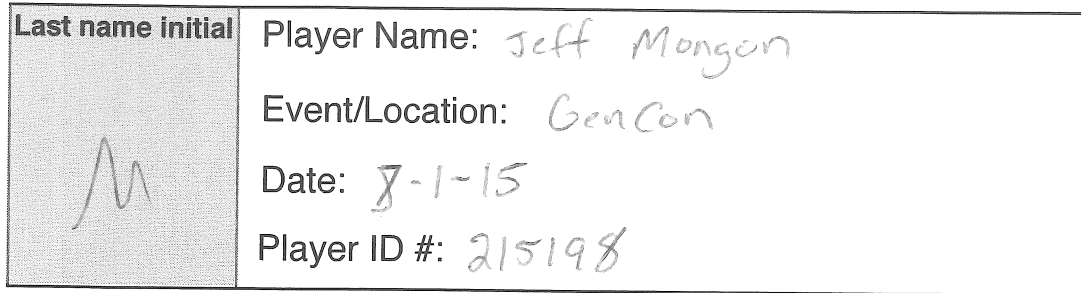 Last name initial
M
Player Name: Jeff Mongon
Event/Location: GenCon
Date: 8-1-15
Player ID #: 215198